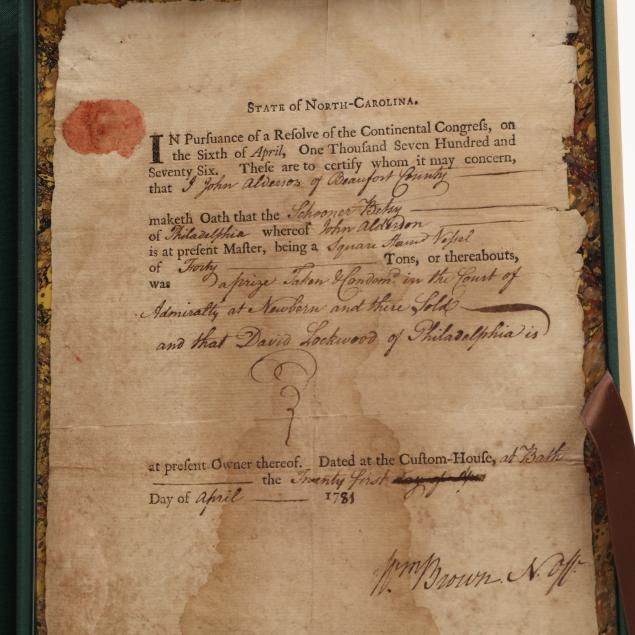 STATE of NORTH-CAROLINA.
IN Pursuance of a Resolve of the Continental Congress, on
the Sixth of April, One Thousand Seven Hundred and
Seventy Six. These are to certify whom it may concern,
that I John Alderson of Beaufort County
maketh Oath that the Schooner Betsy
of Philadelphia whereof John Alderson
is at present Master, being a Square Stern Vessel
of Forty Tons, or thereabouts,
was a prize Taken & Condemd. in the Court of
Admiralty at Newbern and there Sold
and that David Lockwood of Philadelphia is
at present Owner thereof. Dated at the Custom-House, at Bath
the Twenty first day of Apr
Day of April 1781
Wm Brown N. Off.